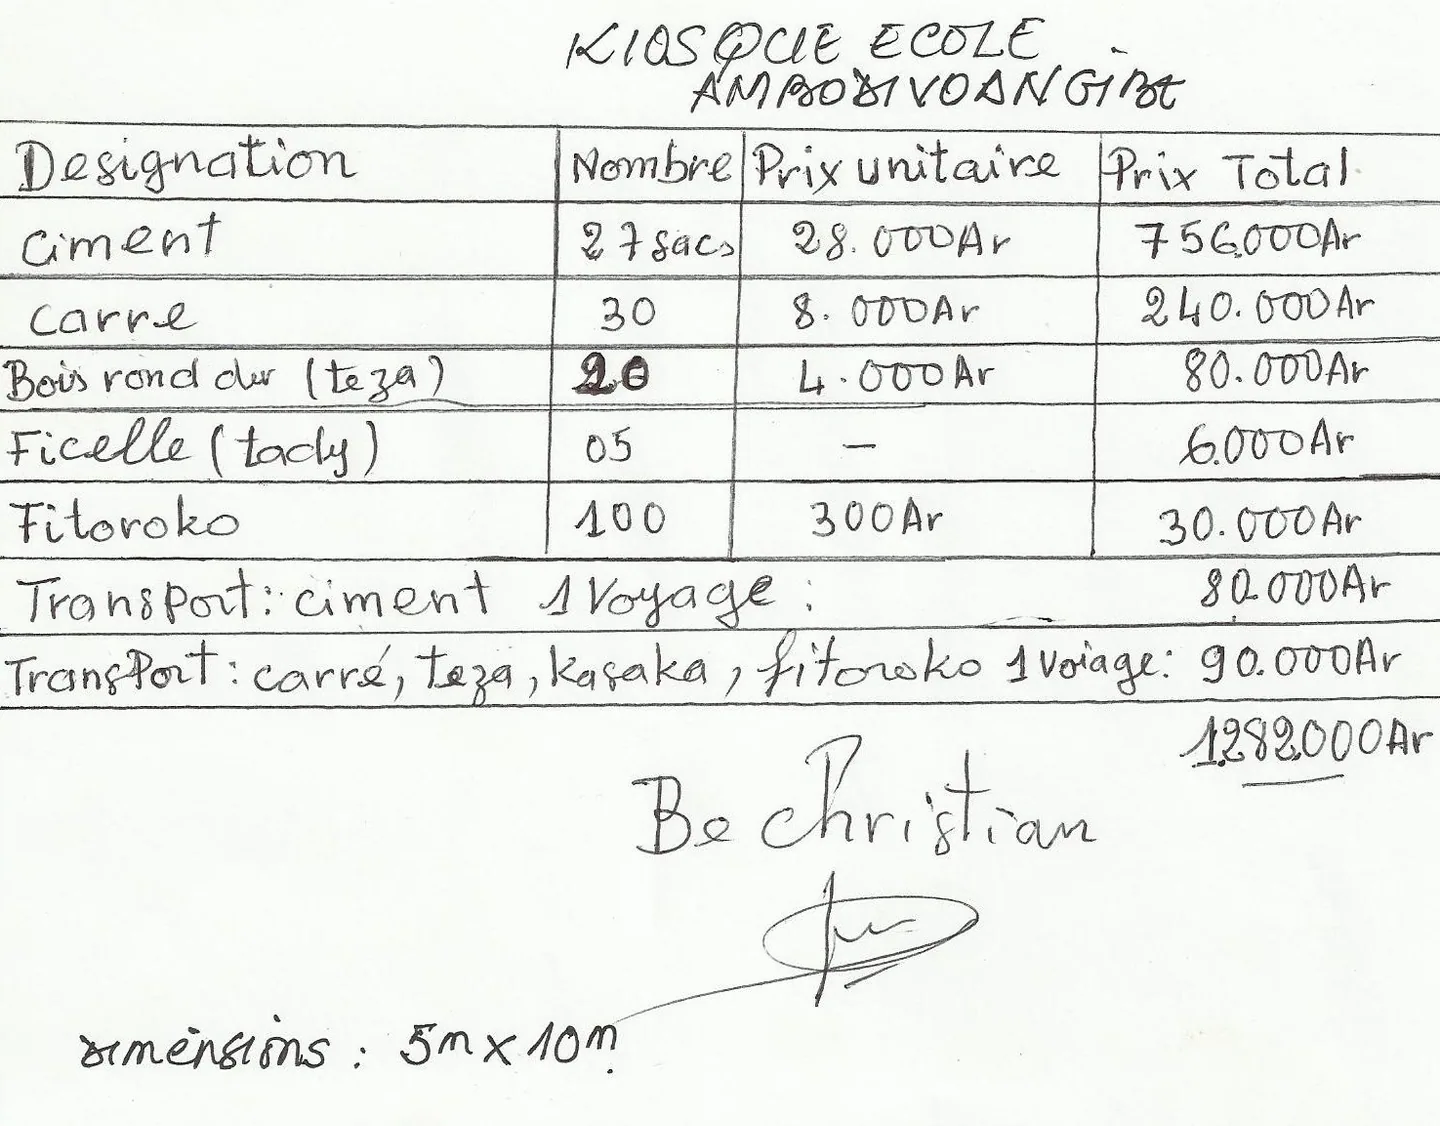 KIOSQUE ECOLE
AMBODIVOANGIBE
Designation Nombre Prix unitaire Prix Total
ciment 27 sacs 28.000Ar 756.000Ar
carre 30 8.000Ar 240.000Ar
Bois rond dur (teza) 20 4.000Ar 80.000Ar
Ficelle (tady) 05 — 6.000Ar
Fitoroko 100 300Ar 30.000Ar
Transport: ciment 1 Voyage : 80.000Ar
TransPort: carré, teza, kasaka, fitoroko 1 Voiage: 90.000Ar
1.282.000Ar
Be Christian
Dimènsions : 5m x 10m